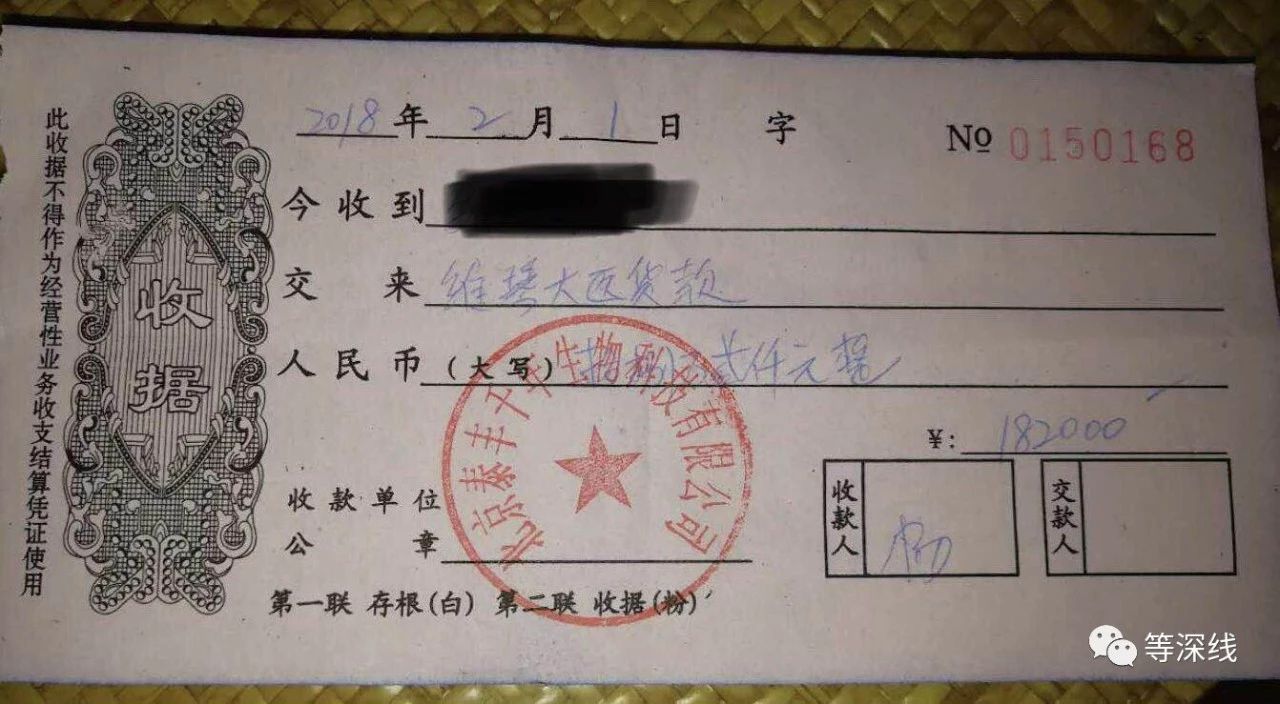 此收据不得作为经营性业务收支结算凭证使用
收据
2018年2月1日 字 № 0150168
今收到
交来 大医货款
人民币(大写) 贰仟元整
¥: 182000
收款单位
公章
北京泰丰千禾生物科技有限公司
收款人
交款人
第一联 存根(白) 第二联 收据(粉)
等深线